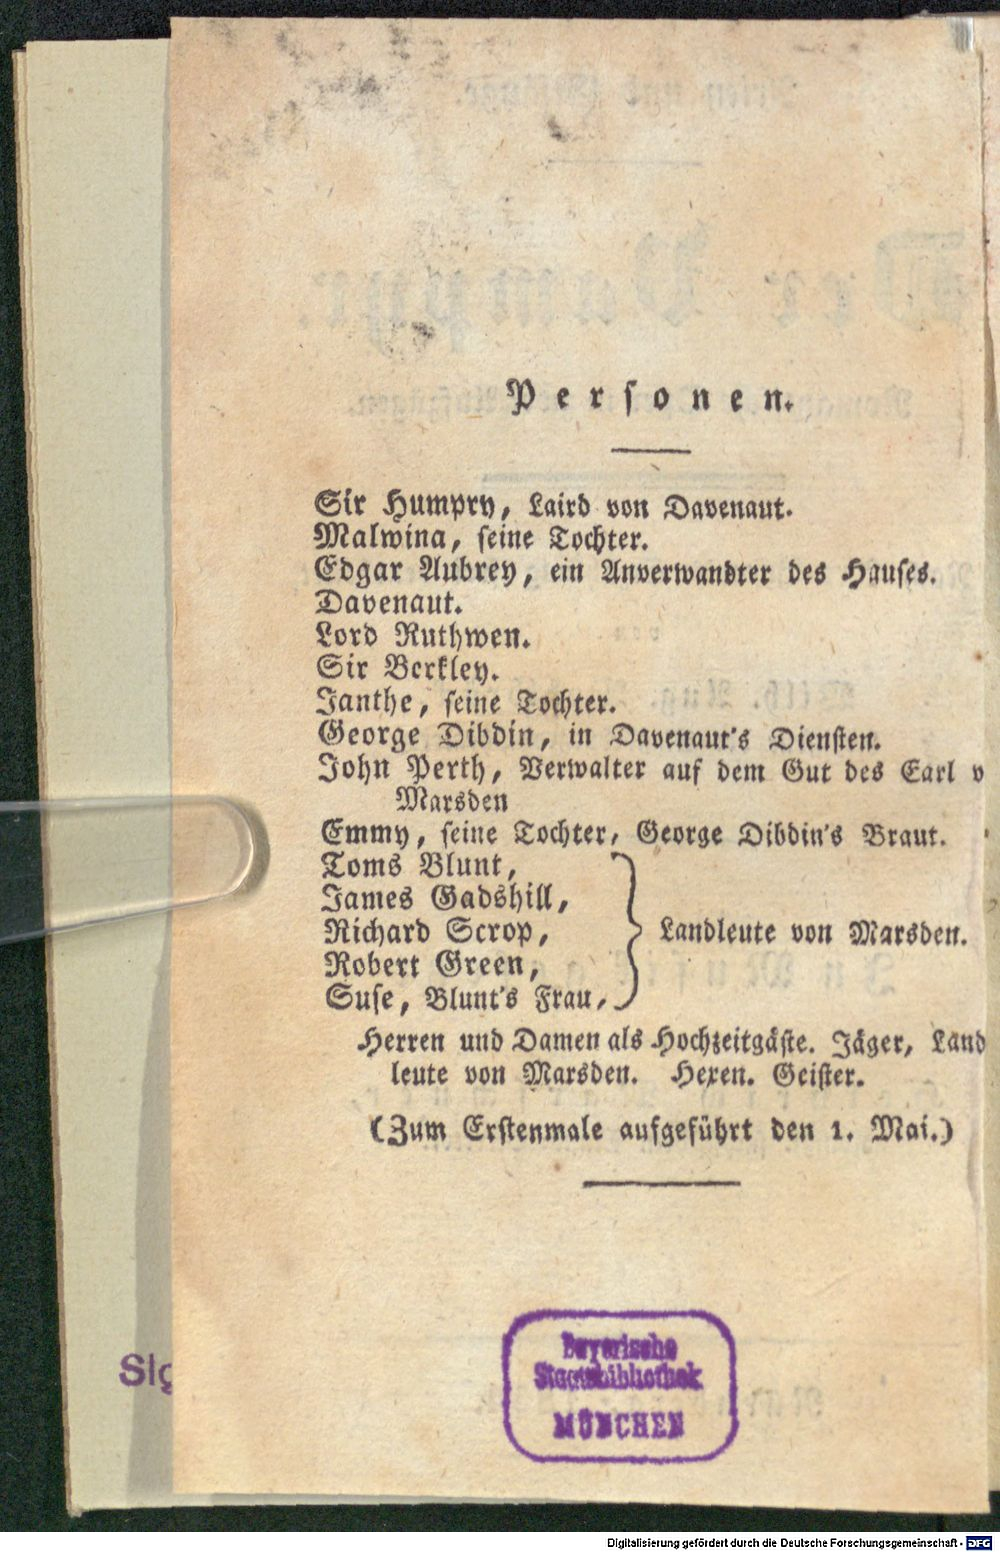 Personen.
Sir Humpry, Laird von Davenaut.
Malwina, seine Tochter.
Edgar Aubrey, ein Anverwandter des Hauses.
Davenaut.
Lord Ruthwen.
Sir Berkley.
Janthe, seine Tochter.
George Dibdin, in Davenaut's Diensten.
John Perth, Verwalter auf dem Gut des Earl v
Marsden
Emmy, seine Tochter, George Dibdin's Braut.
Toms Blunt,
James Gadshill,
Richard Scrop,
Robert Green,
Suse, Blunt's Frau,
Landleute von Marsden.
Herren und Damen als Hochzeitgäste. Jäger, Land
leute von Marsden. Hexen. Geister.
(Zum Erstenmale aufgeführt den 1. Mai.)
Bayerische
Staatsbibliothek
MÜNCHEN
Sig
Digitalisierung gefördert durch die Deutsche Forschungsgemeinschaft - DFG